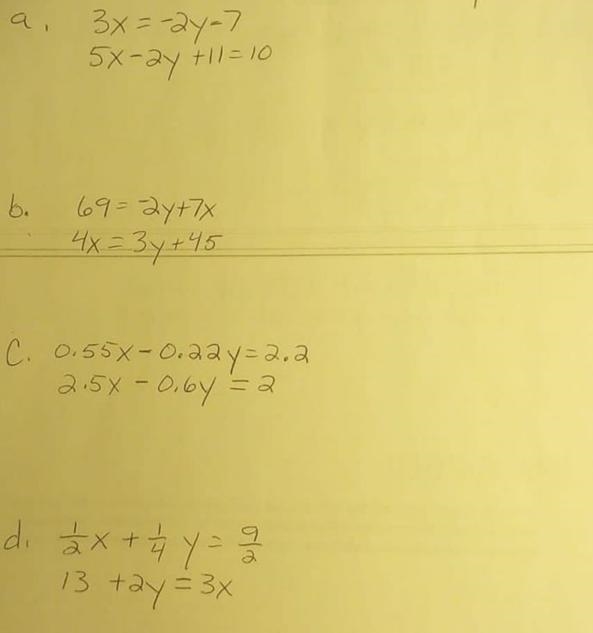 a. 3x = -2y-7
5x-2y +11=10
b. 69= -2y+7x
4x = 3y+45
C. 0.55x - 0.22y = 2.2
2.5x - 0.6y = 2
d. 1/2 x + 1/4 y = 9/2
13 +2y = 3x